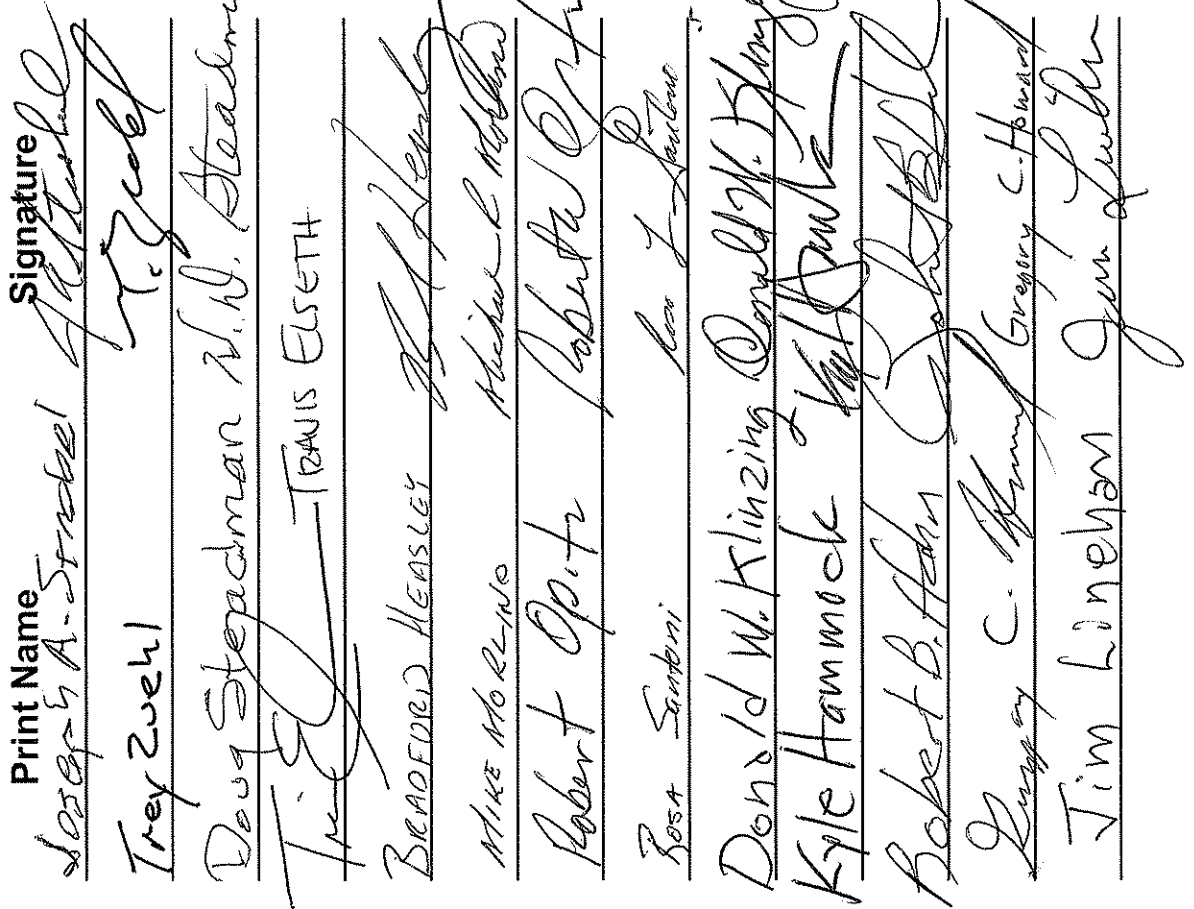 Print Name Signature
Joseph A. Strobel
Trey Zuehl T. Zuehl
Doug Steadman N.W. Steadman
TRAVIS ELSETH
BRADFORD HEASLEY
MIKE MORLINO Michael R Morlino
Robert Opitz Robert Opitz
ROSA Santoni Rosa L Santoni
Donald W. Klinzing Donald W. Klinzing
Kyle Hammock
Robert B. Adn
Gregory C. Gregory C. Howard
Jim Linehan Jim Linehan